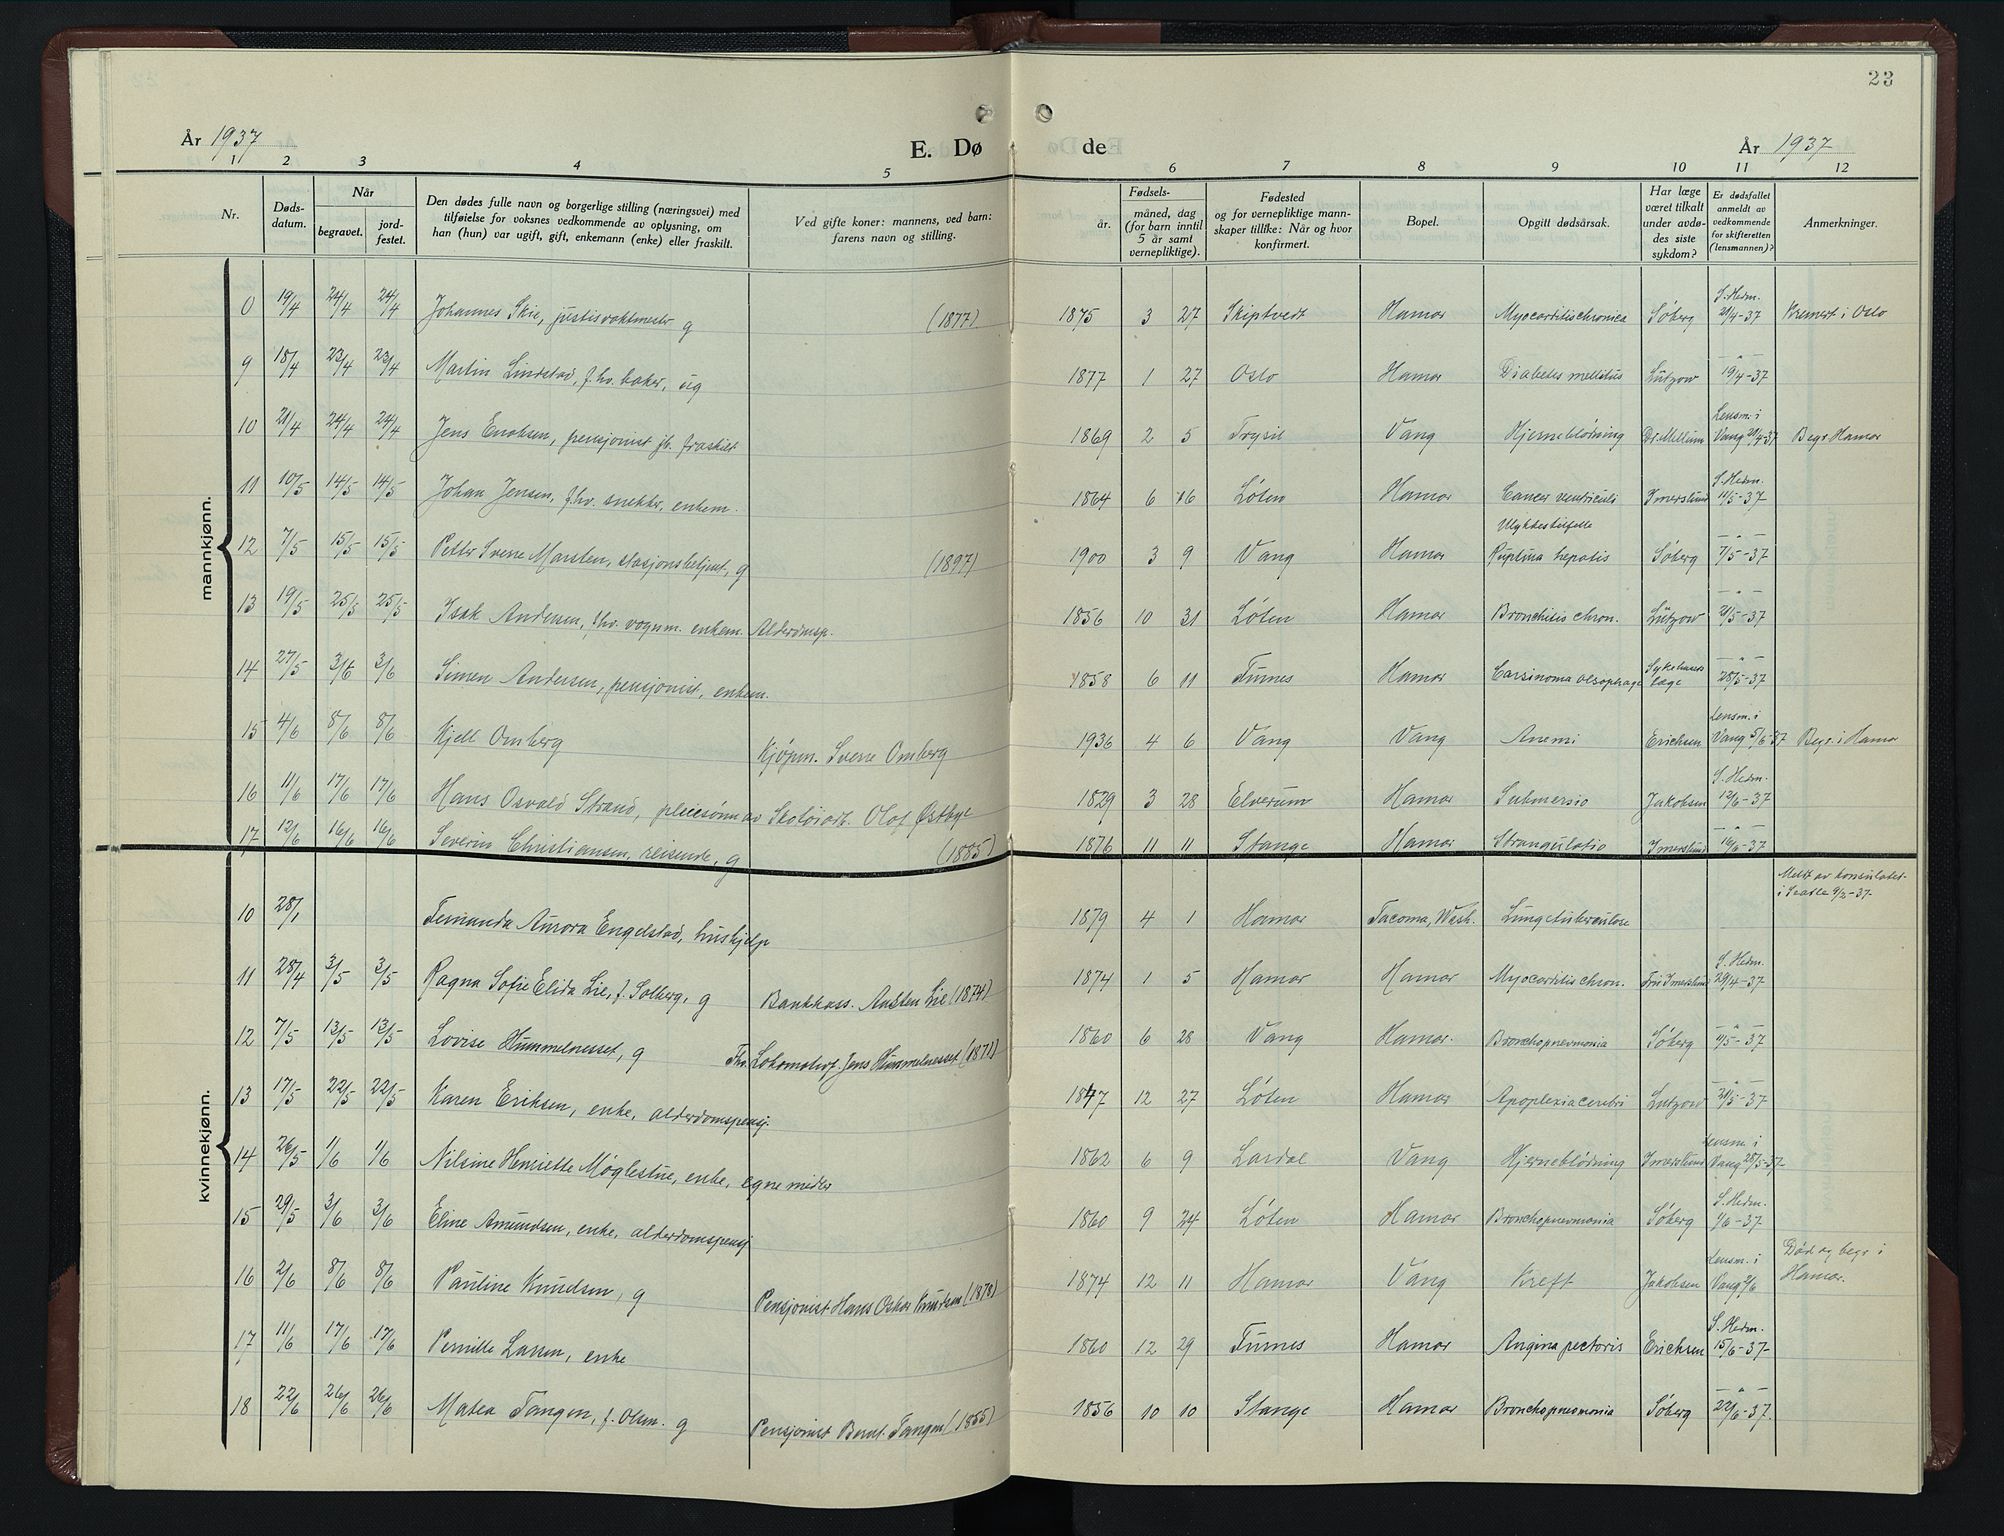 23
År 1937
E. Dø
de
År 1937
1 2 3 4 5 6 7 8 9 10 11 12
Nr.
Døds-
datum.
Når
begravet.
jord-
festet.
Den dødes fulle navn og borgerlige stilling (næringsvei) med
tilføielse for voksnes vedkommende av oplysning, om
han (hun) var ugift, gift, enkemann (enke) eller fraskilt.
Ved gifte koner: mannens, ved barn:
farens navn og stilling.
Fødsels-
år.
måned, dag
(for barn inntil
5 år samt
vernepliktige).
Fødested
og for vernepliktige mann-
skaper tillike: Når og hvor
konfirmert.
Bopel.
Opgitt dødsårsak.
Har læge
været tilkalt
under avdø-
des siste
sykdom?
Er dødsfallet
anmeldt av
vedkommende
for skifteretten
(lensmannen)?
Anmerkninger.
mannkjønn.
0 19/4 24/4 24/4 Johannes Skie, justisvaktmester g (1877) 1875 3 27 Skiptvedt Hamar Myocarditis chronica Søberg S. Hedm. 21/4-37 Kremert i Oslo
9 18/4 23/4 23/4 Martin Lindstad, f.hv. baker, ug 1877 1 27 Oslo Hamar Diabetes mellitus Lützow -"- 19/4-37
10 21/4 24/4 24/4 Jens Enoksen, pensjonist fraskilt 1869 2 5 Trysil Vang Hjerneblødning Dr. Mellum Lensm. i Vang 21/4-37 Begr. Hamar
11 10/5 14/5 14/5 Johan Jensen, f.hv. snekker, enkem. 1864 6 16 Løten Hamar Cancer ventriculi Imerslund S. Hedm. 11/5-37
12 7/5 15/5 15/5 Petter Sverre Marsten, stasjonsbetjent, g (1897) 1900 3 9 Vang Hamar Ulykkestilfelle Ruptura hepatis Søberg -"- 7/5-37
13 19/5 25/5 25/5 Isak Andersen, f.hv. vognm. enkem. Alderdmsp. 1856 10 31 Løten Hamar Bronchitis chron. Lützow -"- 21/5-37
14 27/5 3/6 3/6 Simen Andersen, pensjonist, enkem. 1858 6 11 Furnes Hamar Carsinoma oesophage Sykehusets læge -"- 28/5-37
15 4/6 8/6 8/6 Kjell Omberg Kjøpm. Sverre Omberg 1936 4 6 Vang Vang Anemi Erichsen Lensm. i Vang 5/6-37 Begr. i Hamar
16 11/6 17/6 17/6 Hans Osvald Strand, pleiesønn av Skoleradt. Olaf Østbye 1829 3 28 Elverum Hamar Submersio Jakobsen S. Hedm. 12/6-37
17 12/6 16/6 16/6 Severin Christiansen, reisende, g (1885) 1876 11 11 Stange Hamar Strangulatio Imerslund -"- 14/6-37
kvinnekjønn.
10 28/1 Fernanda Aurora Engelstad, hushjelp 1879 4 1 Hamar Tacoma, Wash. Lungetuberculose Meldt av konsulatet i Seatle 9/2-37-
11 28/4 3/5 3/5 Ragna Sofie Elida Lie, f. Solberg, g Bankkass. Austen Lie (1874) 1874 1 5 Hamar Hamar Myocarditis chron. Imerslund S. Hedm. 29/4-37
12 7/5 13/5 13/5 Lovise Hummelnesset, g Fhv. Lokomotivf. Jens Hummelnesset (1871) 1860 6 28 Vang Hamar. Bronchopneumonia Søberg -"- 11/5-37
13 17/5 22/5 22/5 Karen Eriksen, enke, alderdomspensj. 1847 12 27 Løten Hamar Apoplexia cerebri Lützow -"- 20/5-37
14 26/5 1/6 1/6 Nilsine Henriette Møglestue, enke, egne midler 1862 6 9 Lardal Vang Hjerneblødning Imerslund Lensm. i Vang 28/5-37-
15 29/5 3/6 3/6 Eline Amundsen, enke, alderdomspensj 1860 9 24 Løten Hamar Bronchopneumonia Søberg S. Hedm. 1/6-37
16 2/6 8/6 8/6 Pauline Knudsen, g Pensjonist Hans Oskar Knudsen (1878) 1874 12 11 Hamar Vang Kreft Jakobsen Lensm. i Vang 2/6 Død og begr. i Hamar.
17 11/6 17/6 17/6 Pernille Larsen, enke 1860 12 29 Furnes Hamar Angina pectoris Erichsen S. Hedm. 15/6-37-
18 22/6 26/6 26/6 Matea Tangen, f. Olsen. g Pensjonist Bernt. Tangen (1855) 1856 10 10 Stange Hamar Bronchopneumonia Søberg -"- 22/6-37.